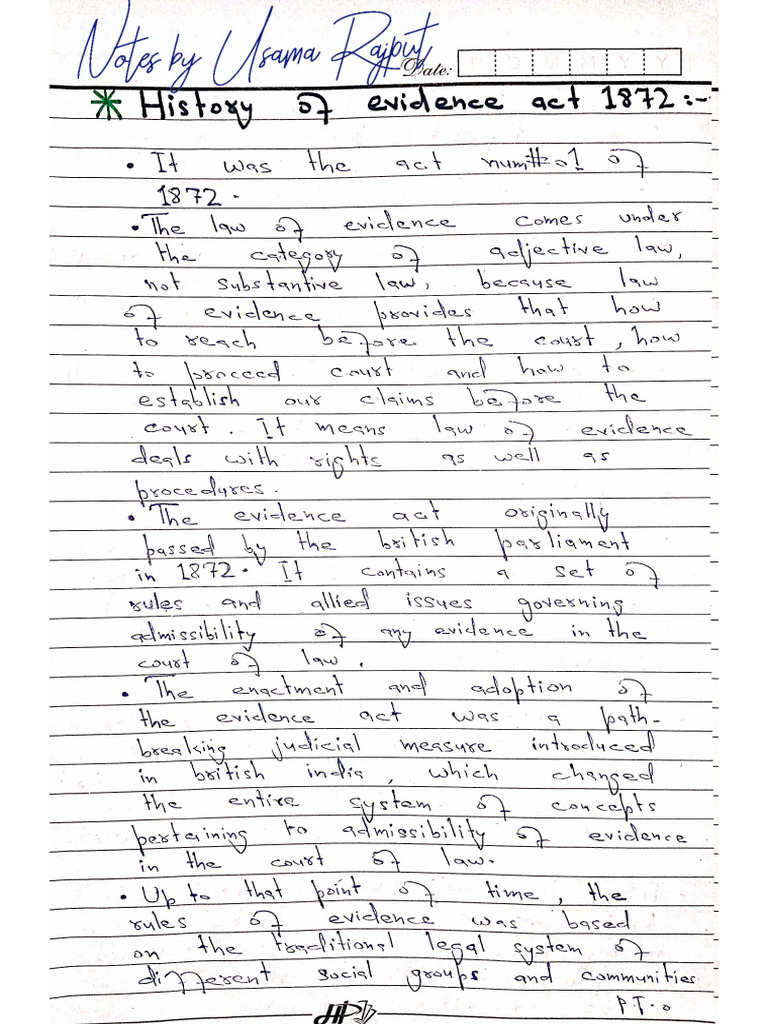 Notes by Usama Rajput
Date:
* History of evidence act 1872:-
• It was the act num# 01 of
1872.
• The law of evidence comes under
the category of adjective law,
not substantive law, because law
of evidence provides that how
to reach before the court, how
to proceed court and how to
establish our claims before the
court. It means law of evidence
deals with rights as well as
procedures.
• The evidence act originally
passed by the british parliament
in 1872. It contains a set of
rules and allied issues governing
admissibility of any evidence in the
court of law.
• The enactment and adoption of
the evidence act was a path-
breaking judicial measure introduced
in british india, which changed
the entire system of concepts
pertaining to admissibility of evidence
in the court of law.
• Up to that point of time, the
rules of evidence was based
on the traditional legal system of
different social groups and communities
P.T.o